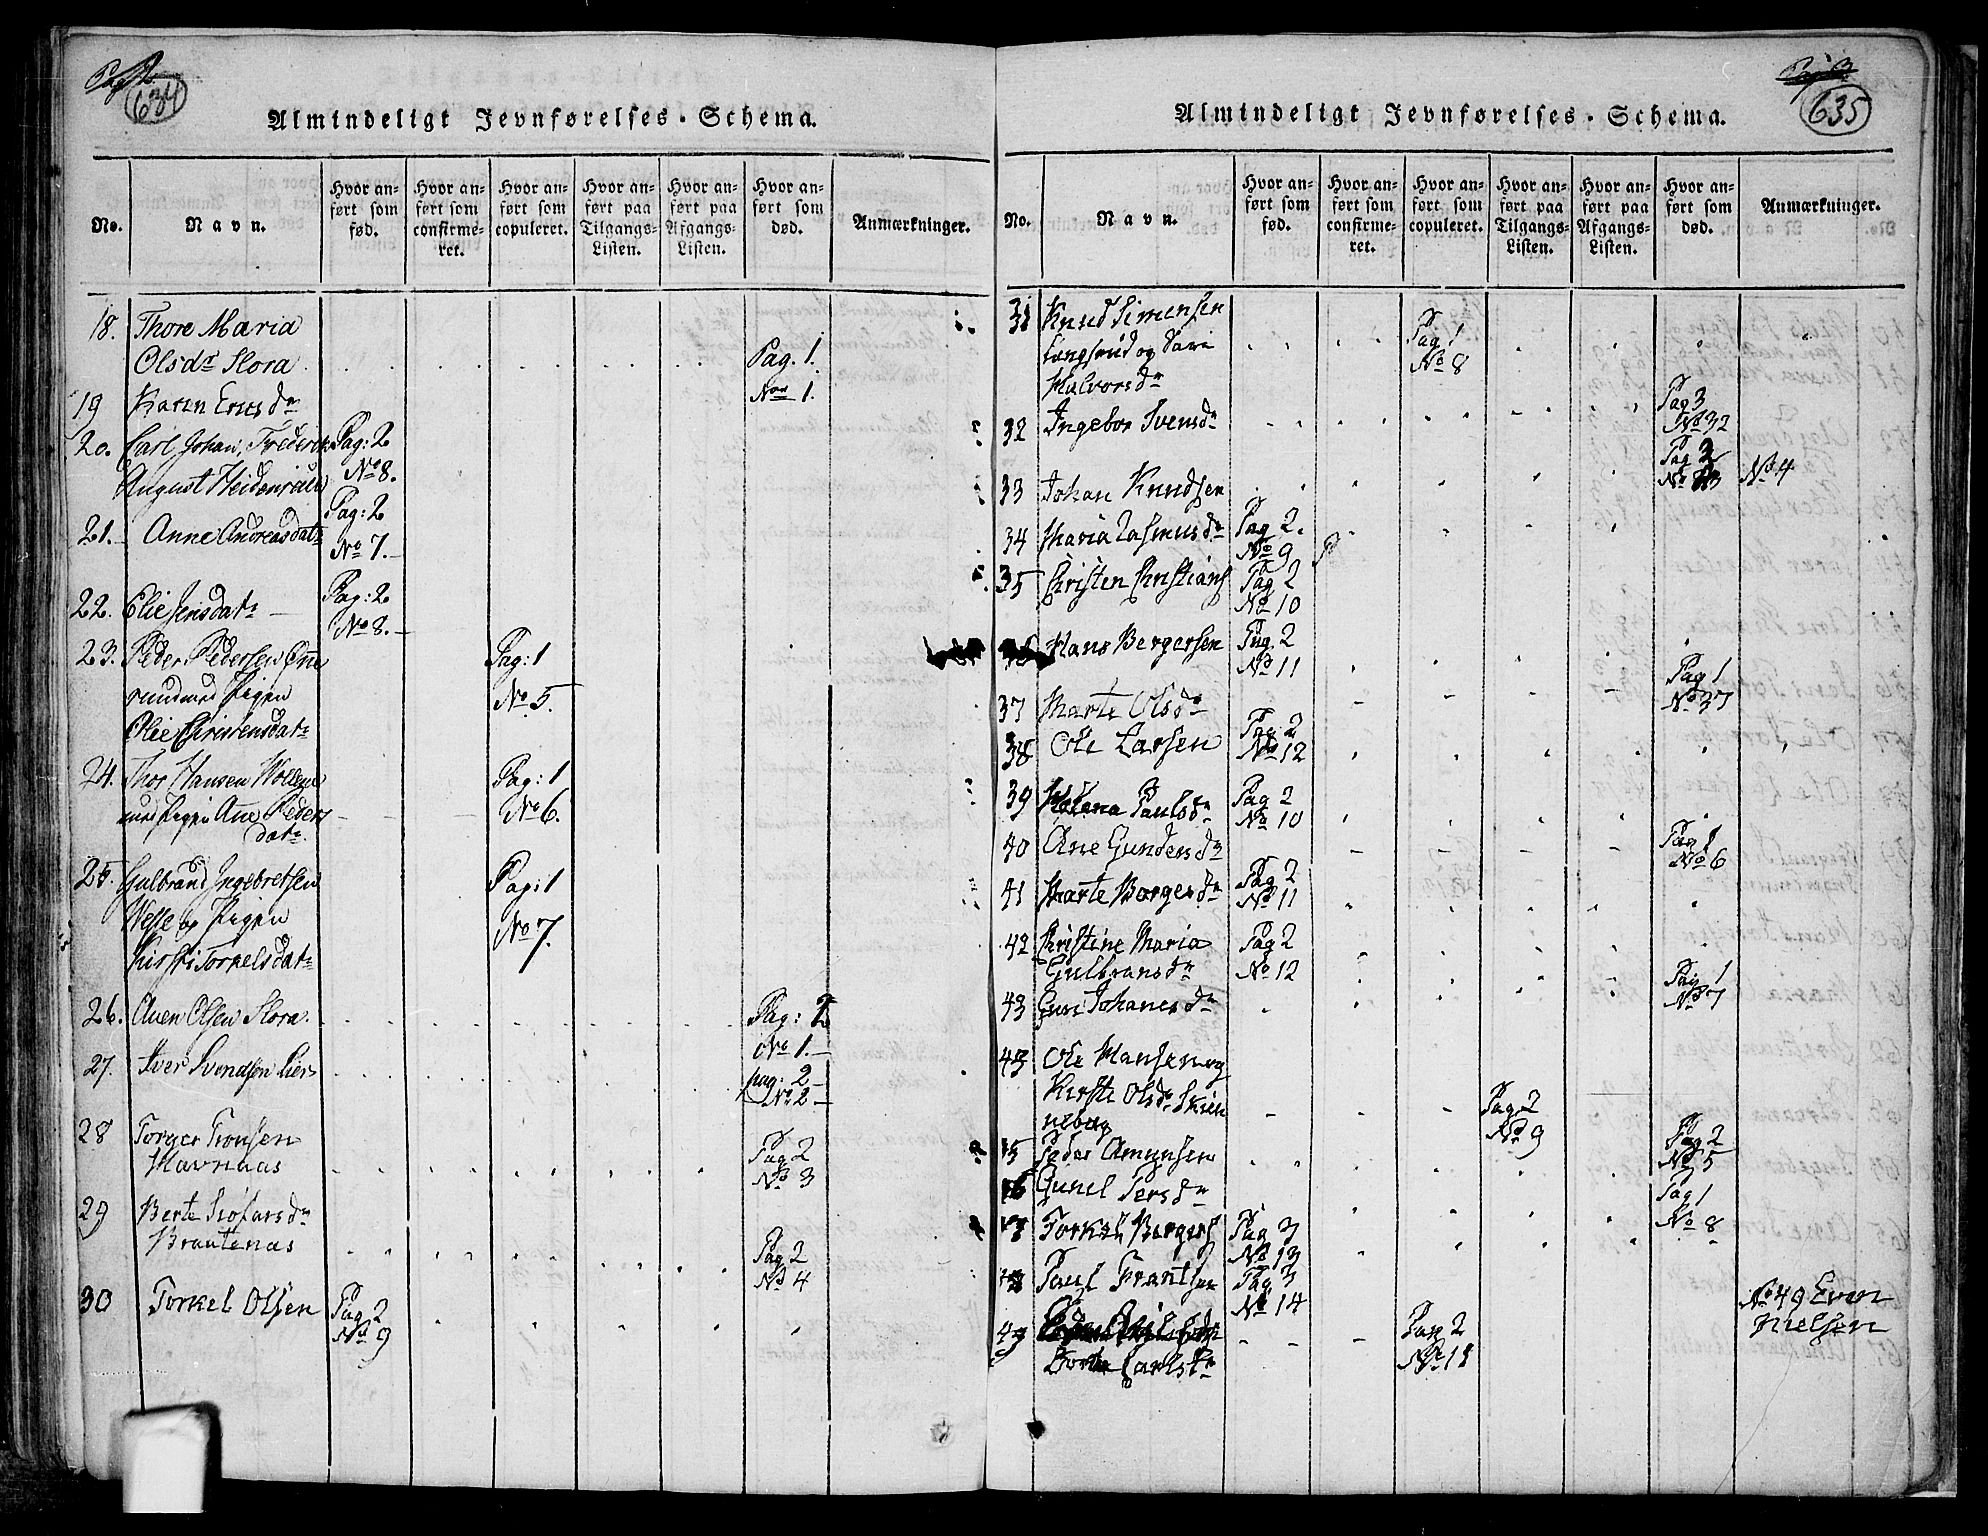 Pag 2.
634
Almindeligt Jevnførelses-Schema.
No.
Navn.
Hvor an-
ført som
fød.
Hvor an-
ført som
confirme-
ret.
Hvor an-
ført som
copuleret.
Hvor an-
ført paa
Tilgangs-
Listen.
Hvor an-
ført paa
Afgangs-
Listen.
Hvor an-
ført som
død.
Anmærkninger.
18. Thore Maria
Olsdr Slora Pag. 1.
No 1.
19 Karen Ericsdr
20. Carl Johan, Frederik Pag: 2
August Heidenrich No 8.
21. Anne Andreasdatr Pag: 2
No 7.
22. Elie Jensdatr Pag: 2
No 8.
23. Peder Pedersen Pag: 1
rund med Pigen No 5.
Olie Christensdatr
24. Thor Hansen Pag: 1
med Pigen Ane Peders No 6.
datr
25. Gulbrand Ingebretsen Pag: 1
og Pigen No 7.
Kirsti Torkelsdatr
26. Auen Olsen Slora. Pag: 2
No 1.
27. Iver Svendsen Lier pag: 2
No 2
28 Torger Tronsen Pag 2
Havnaas No 3
29 Berte dr
Brautenas Pag 2
No 4
30 Torkel Olsen Pag 2
No 9
Pag 3
635
Almindeligt Jevnførelses-Schema.
No.
Navn.
Hvor an-
ført som
fød.
Hvor an-
ført som
confirme-
ret.
Hvor an-
ført som
copuleret.
Hvor an-
ført paa
Tilgangs-
Listen.
Hvor an-
ført paa
Afgangs-
Listen.
Hvor an-
ført som
død.
Anmærkninger.
31 Knud Simensen Pag 1
Langsrud og No 8
Halvorsdr
32 Ingebor Svensdr Pag 3
No 32
33 Johan Knudsen Pag 2
No No 4
34 Maria Rasmusdr Pag 2.
No 9
35 Christen Christians Pag 2
No 10
Hans Bergersen Pag. 2
No 11
37 Marte Olsdr Pag 1
No 37
38 Ole Larsen Pag 2
No 12
39 Helena Paulsdr Pag 2
No 10
40 Ane Gundersdr Pag 1
No 6
41 Marte Borgersdr Pag 2
No 11
42 Christine Maria Pag 2
Gulbransdr No 12
43 Guri Johanesdr Pag 1
No 7
43 Ole Hansen og
Kirste Olsdr Pag 2
neborg No 9
45 Peder Amunsen Pag 2
No 5
46 Gunel Persdr Pag 1
No 8
47 Torkel Bergers Pag 3
No 13
48 Paul Frantsen Pag 3
No 14
49 Pag 2
Carlsdr No 11
No 49 Even
Nielsen